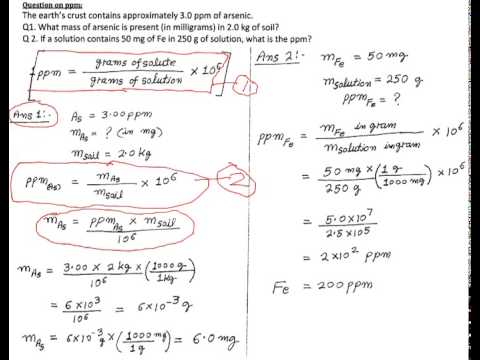 Question on ppm:
The earth's crust contains approximately 3.0 ppm of arsenic.
Q1. What mass of arsenic is present (in milligrams) in 2.0 kg of soil?
Q 2. If a solution contains 50 mg of Fe in 250 g of solution, what is the ppm?
ppm = grams of solute / grams of solution × 10⁶
1
Ans 1:-
As = 3.00 ppm
m_As = ? (in mg)
m_soil = 2.0 kg
ppm(As) = m_As / m_soil × 10⁶
2
m_As = ppm_As × m_soil / 10⁶
m_As = 3.00 × 2 kg / 10⁶ × (1000 g / 1 kg)
= 6 × 10³ / 10⁶ = 6×10⁻³ g
m_As = 6×10⁻³ g × (1000 mg / 1 g) = 6.0 mg
Ans 2:-
m_Fe = 50 mg
m_solution = 250 g
ppm_Fe = ?
ppm_Fe = m_Fe in gram / m_solution in gram × 10⁶
= 50 mg × (1 g / 1000 mg) / 250 g × 10⁶
= 5.0 × 10⁷ / 2.5 × 10⁵
= 2 × 10² ppm
Fe = 200 ppm